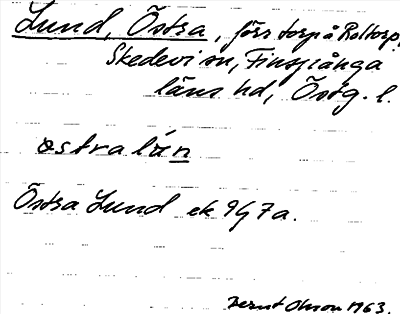 Lund, Östra, förr torp å Roltorp,
Skedevi sn, Finspånga
läns hd, Östg. l.
östra lùn
Östra Lund ek 9G 7a.
Bernt Olsson 1963.